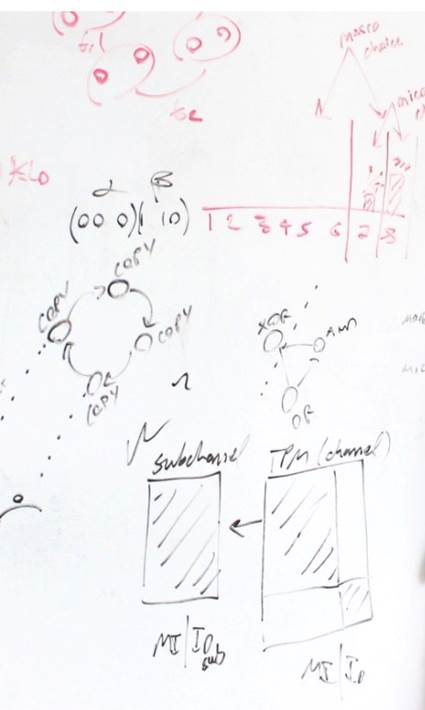 macro
choice
micro
α β
(00 0)(1 10)
1 2 3 4 5 6 7 8
COPY
COPY
COPY
COPY
XOR
AND
OR
subchannel
TPM (channel)
MI | ID sub
MI | ID